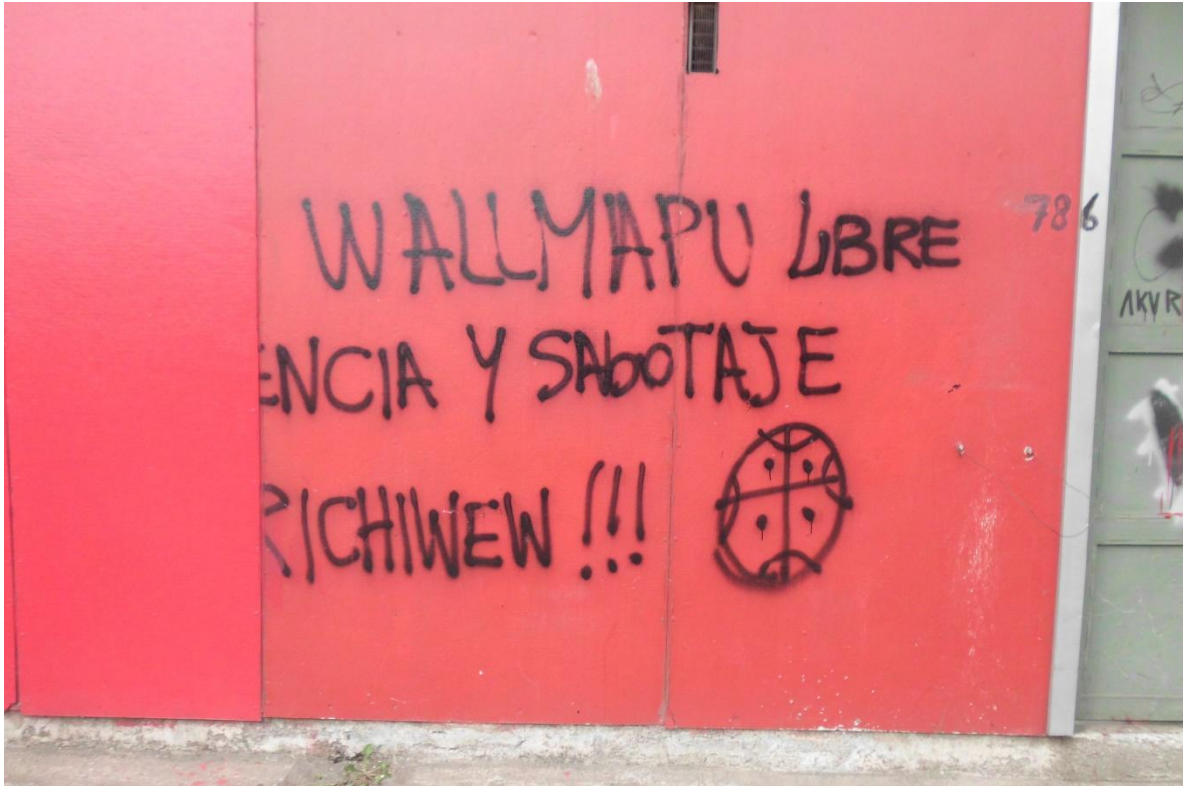 WALLMAPU LIBRE
786
ENCIA Y SABOTAJE
RICHIWEW !!!
AKVR